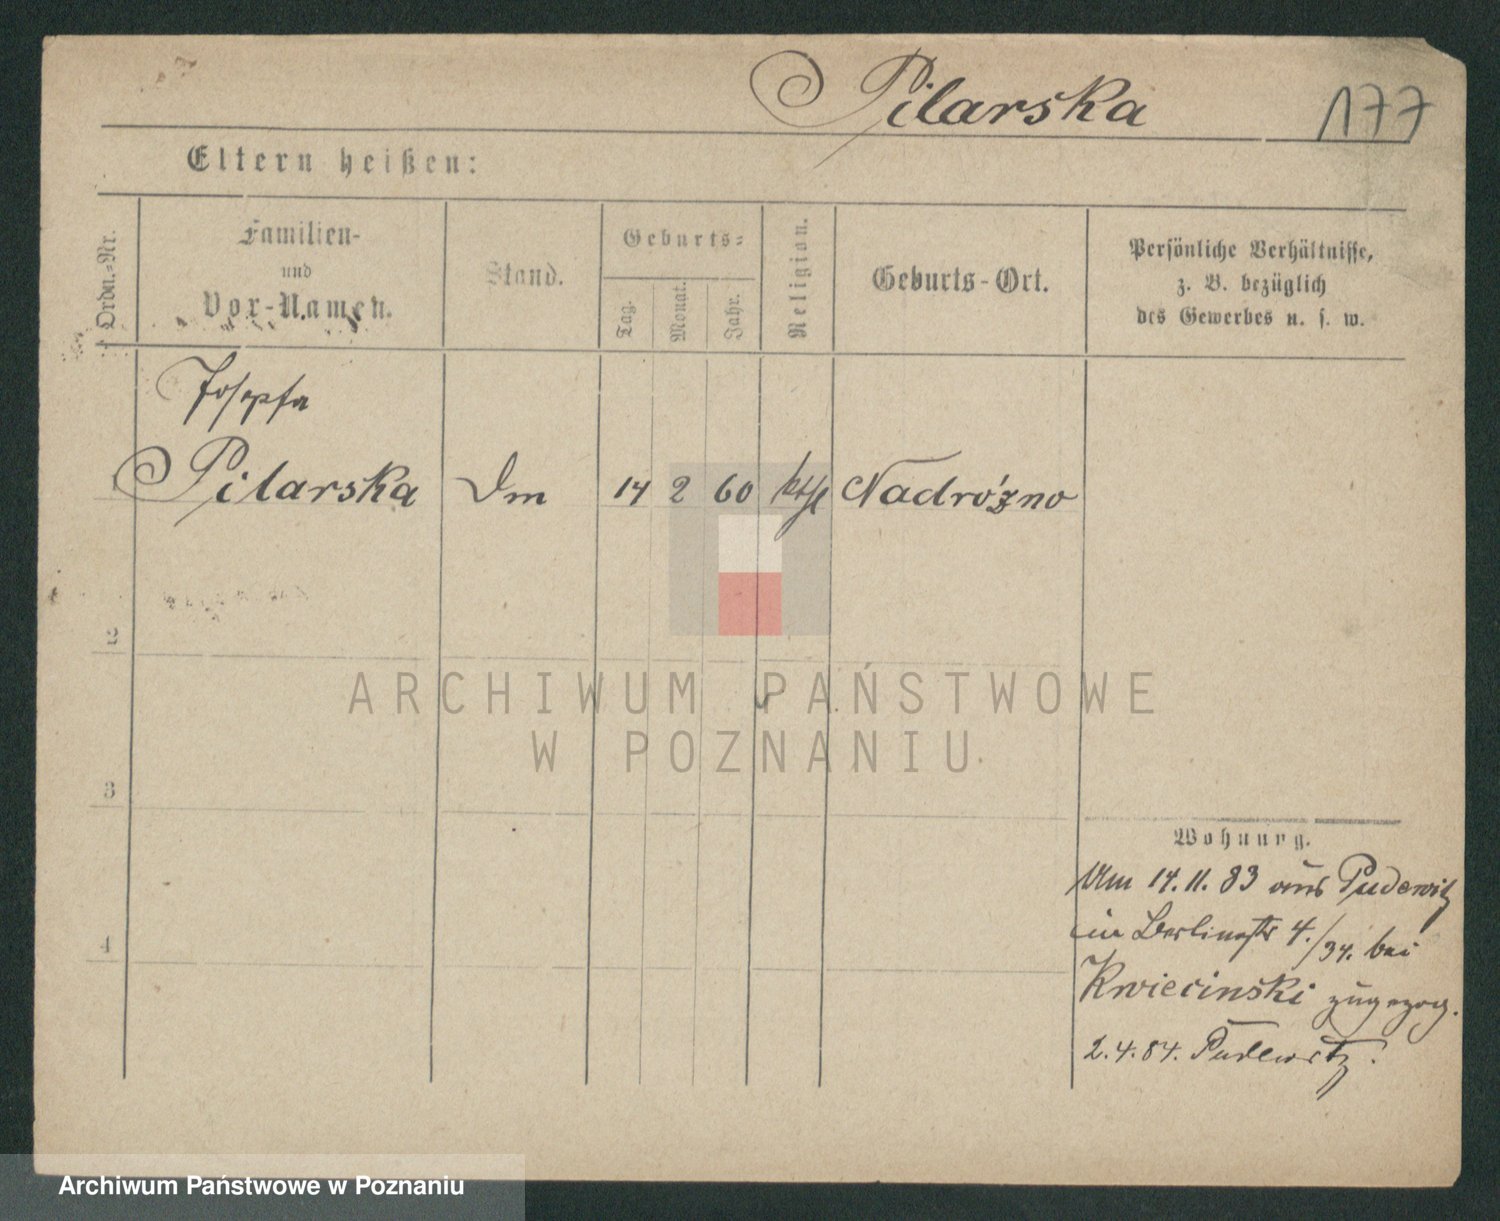 Pilarska
177
Eltern heißen:
Ordn.-Nr.
Familien-
und
Vor-Namen.
Stand.
Geburts-
Tag.
Monat.
Jahr.
Religion.
Geburts-Ort.
Persönliche Verhältnisse,
z. B. bezüglich
des Gewerbes u. s. w.
Josepha
Pilarska Dm 14 2 60 kth Nadróżno
2
3
4
Wohnung.
Am 14.11.83 aus Pudewitz
in Berlinerstr 4./34. bei
Kwiecinski zugezog.
2.4.84. Pudewitz.
ARCHIWUM PAŃSTWOWE
W POZNANIU
Archiwum Państwowe w Poznaniu